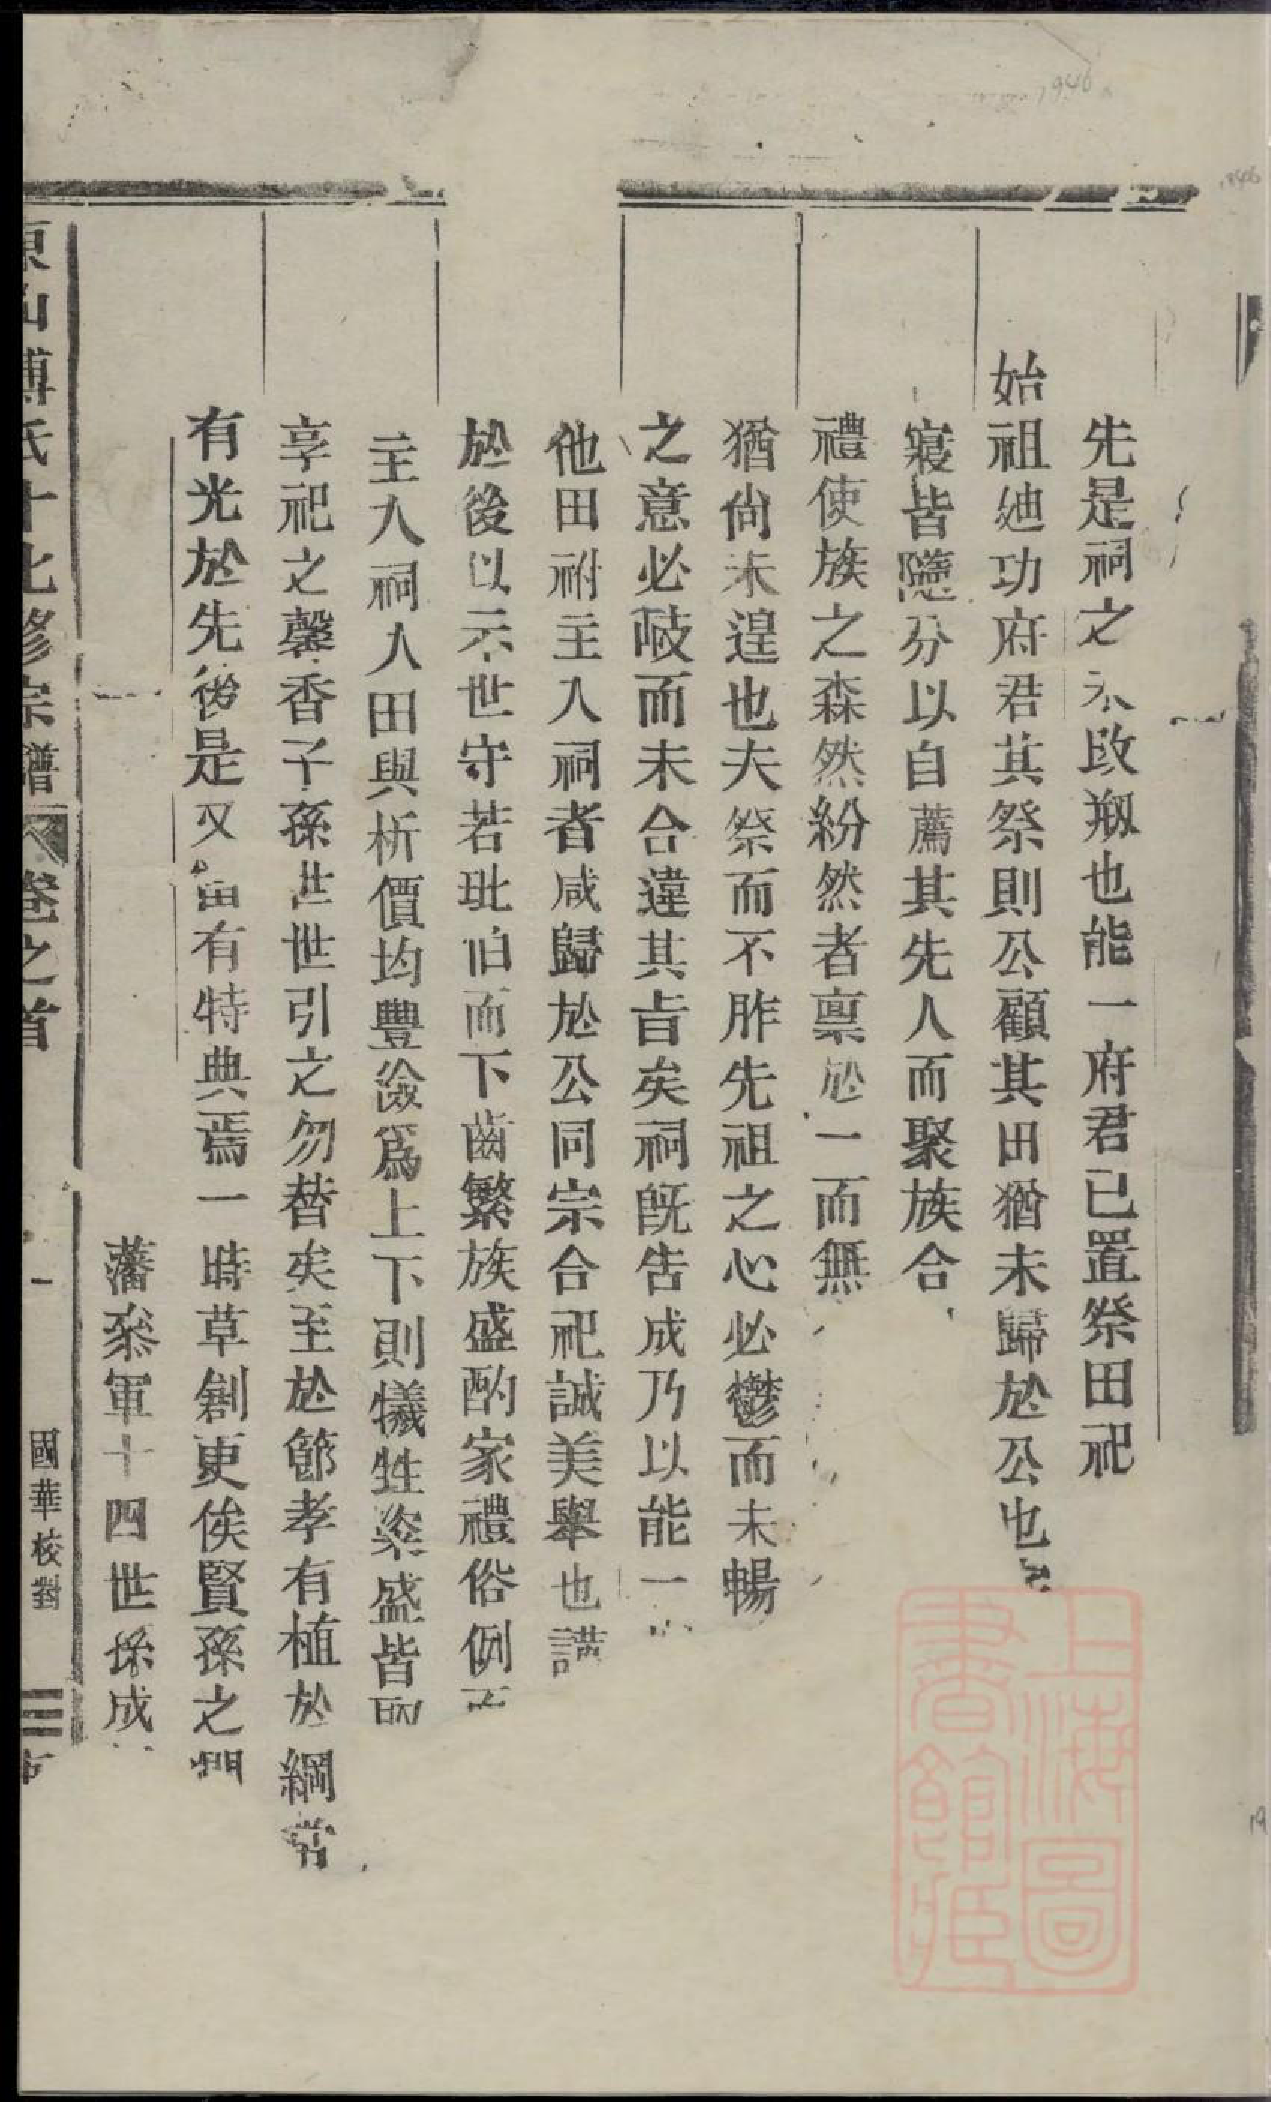 先是祠之未改剏也能一府君已置祭田祀
始祖迪功府君其祭則公顧其田猶未歸於公也
寢皆隨分以自薦其先人而聚族合
禮使族之森然紛然者禀於一而無
猶尙未遑也夫祭而不胙先祖之心必鬱而未暢
之意必岐而未合違其旨矣祠旣告成乃以能一
他田祔主入祠者咸歸於公同宗合祀誠美舉也講
於後以示世守若玭怕而下齒繁族盛酌家禮俗例
主入祠入田與析價均豐儉爲上下則犧牲粢盛皆
享祀之馨香子孫世世引之勿替矣至於節孝有植於綱常
有光於先後是又當有特典焉一時草創更俟賢孫之
藩叅軍十四世孫成
東山傅氏十七修宗譜 卷之首
一
國華校對
上海圖
書館藏